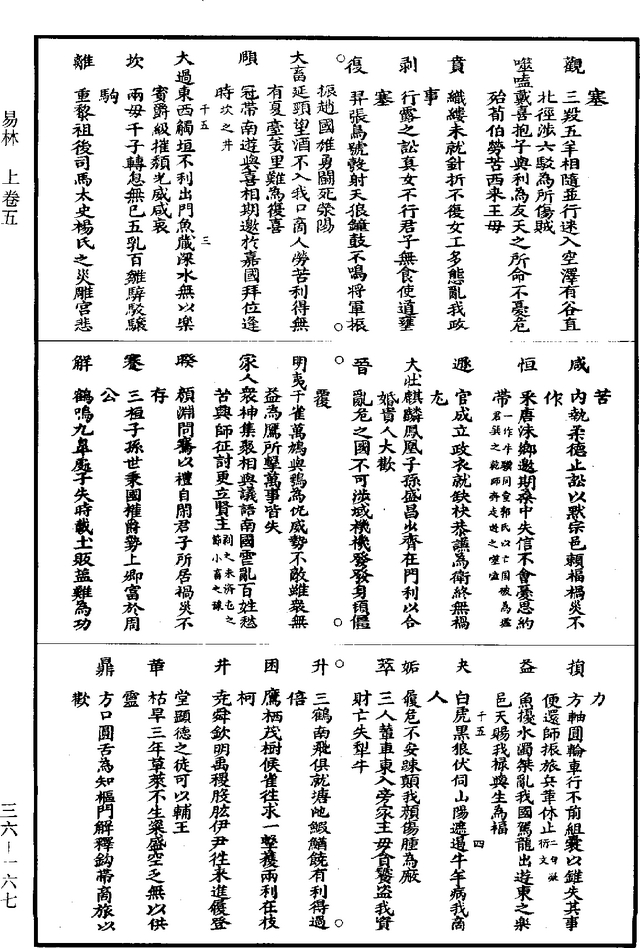 塞
觀 三羖五牂相隨並行迷入空澤有谷直
北徑涉六駁為所傷賊
噬嗑戴喜抱子與利為友天之所命不憂危
殆荀伯勞苦西来王母
賁 織縷未就針折不復女工多態亂我政
事
剥 行露之訟貞女不行君子無食使道壅
塞
復 羿張烏號彀射天狼鐘鼓不鳴將軍振
振趙國雄勇鬭死滎陽
大畜延頸望酒不入我口商人勞苦利得無
有夏臺羑里雖為復喜
頤 冠帶南遊與喜相期邀於嘉國拜位逢
時坎之井
大過東西觸垣不利出門魚藏深水無以樂
賓爵級摧頹光威咸衰
坎 兩母千子轉息無已五乳百雛騂駁驥
駒
離 重黎祖後司馬太史楊氏之災雕宫悲
千五 三
苦
咸 内執柔德止訟以默宗邑頼福禍災不
作
恒 乘唐沫鄉邀期桑中失信不會憂思約
帶
遯 官成立政衣就缺袂恭謙為衛終無禍
尤
大壯麒麟鳳凰子孫盛昌少齊在門利以合
婚貴人大歡
晉 亂危之國不可涉域機機發發身頓僵
覆
明夷千雀萬鳩與鷂為仇威勢不敵雖衆無
益為鷹所擊萬事皆失
家人衆神集聚相與議語南國虐亂百姓愁
苦興師征討更立賢主
睽 顔淵問騫以禮自閑君子所居禍災不
存
蹇 三桓子孫世秉國權爵勢上卿富於周
公
解 鶴鳴九皐處子失時載土販鹽難為功
力
損 方軸圓輪車行不前組囊以錐失其事
便還師振旅兵革休止二句疑衍文
益 魚擾水濁桀亂我國駕龍出遊東之樂
邑天賜我祿與生為福
夬 白虎黑狼伏伺山陽遮遏牛羊病我商
人
千五 四
姤 履危不安跌顛我顔傷腫為廠
萃 三人輦車東入旁家王母貪饕盗我資
財亡失犁牛
升 三鶴南飛俱就塘池鰕鰌饒有利得過
倍
困 鷹栖茂樹候雀往求一擊獲兩利在枝
柯
井 尭舜欽明禹稷股肱伊尹往来進履登
堂顯德之徒可以輔王
革 枯旱三年草萊不生粢盛空乏無以供
靈
鼎 方口圓舌為知樞門解釋鈎帶商旅以
歡
易林 上卷五
三六—一六七